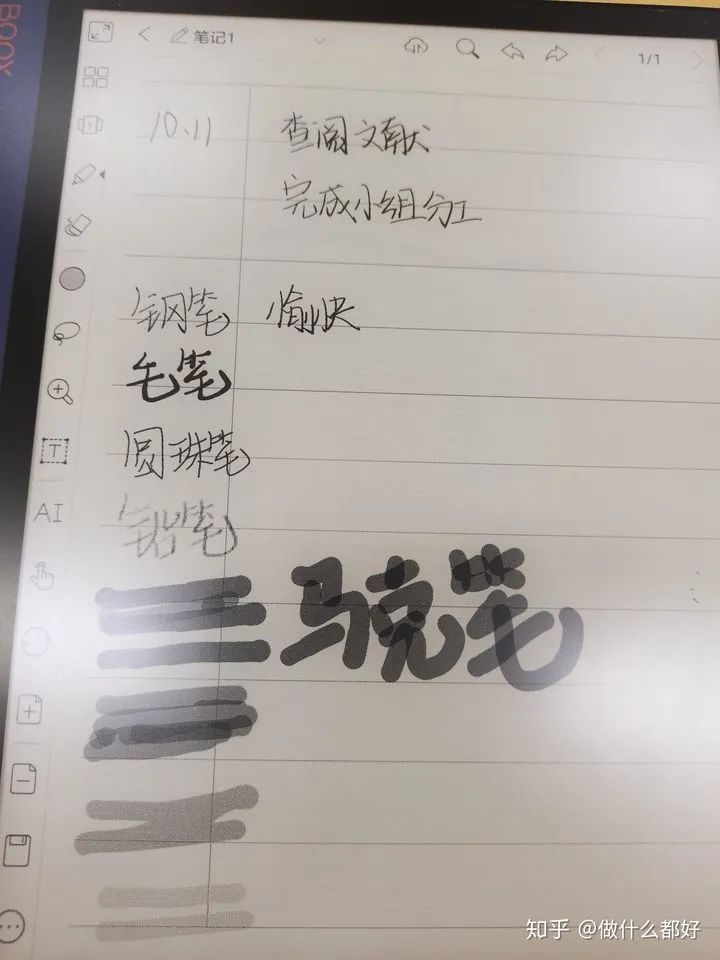 BOOX
笔记1
1/1
10.11 查阅文献
完成小组分工
钢笔 愉快
毛笔
圆珠笔
铅笔
马克笔
T
AI
知乎 @做什么都好